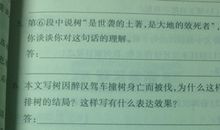 第⑥段中说树“是世袭的土著,是大地的效死者”,
你谈谈你对这句话的理解。
答:
本文写树因醉汉驾车撞树身亡而被伐,为什么这
排树的结局?这样写有什么表达效果?
答: